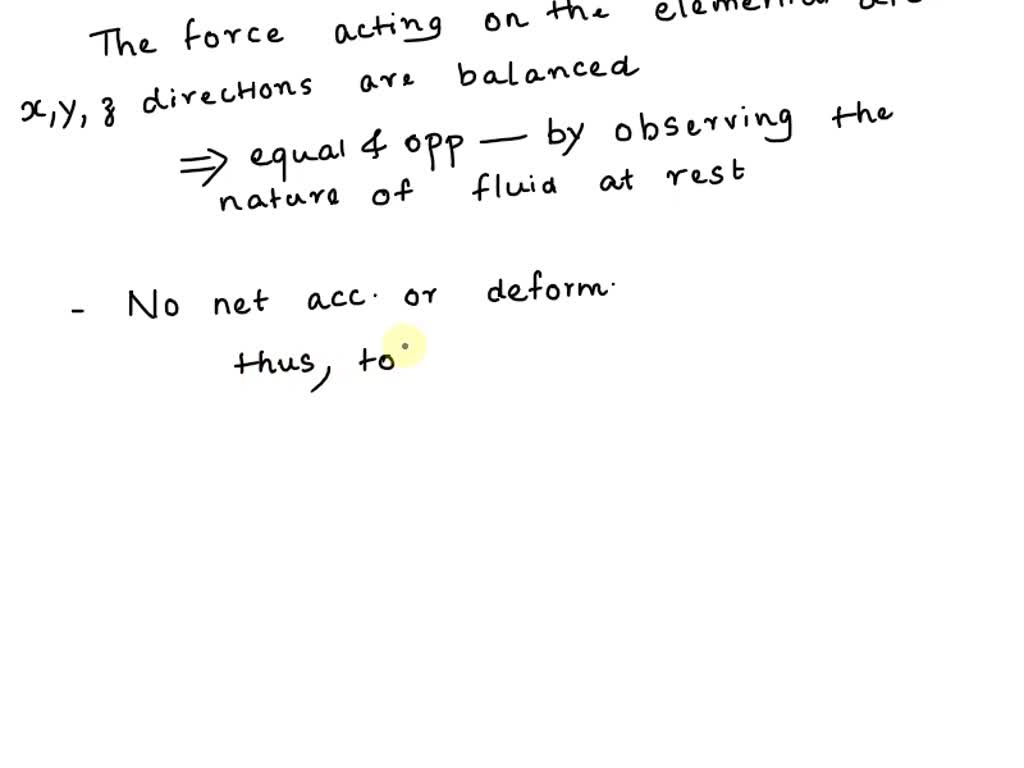 The force acting on the
x,y,z directions are balanced
⇒ equal & opp — by observing the
nature of fluid at rest
- No net acc. or deform.
thus, to